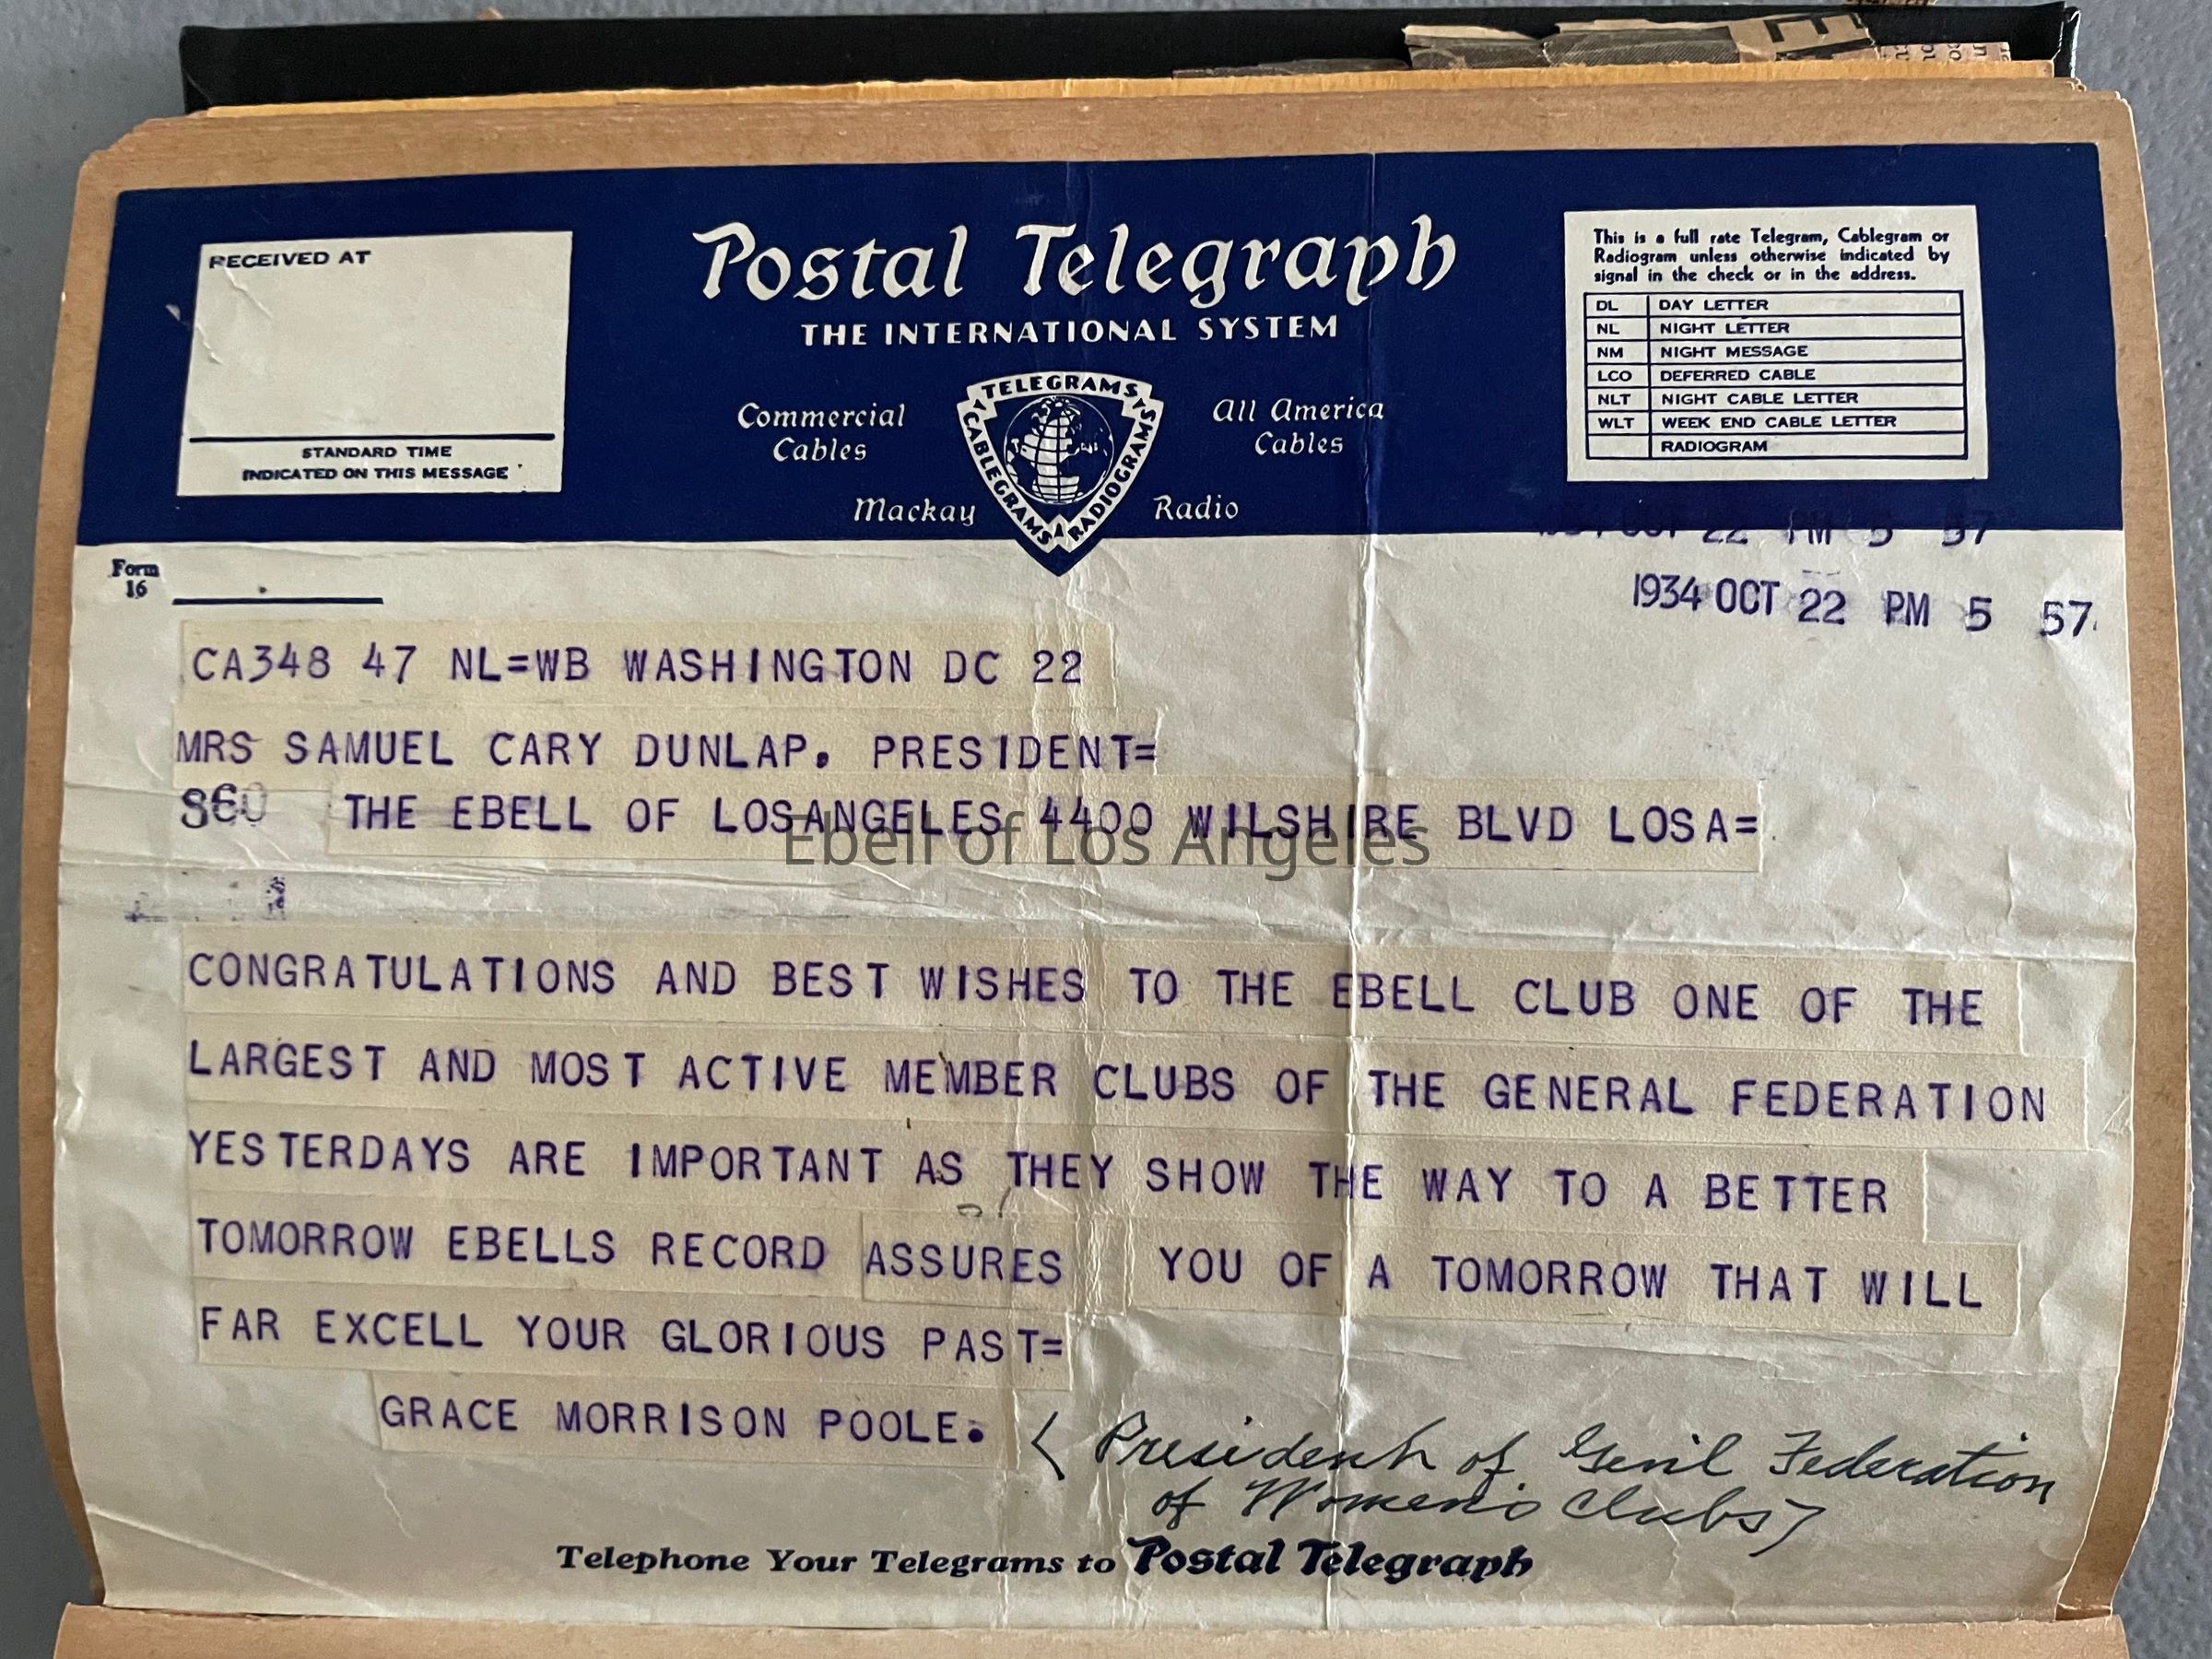 RECEIVED AT
STANDARD TIME
INDICATED ON THIS MESSAGE
Postal Telegraph
THE INTERNATIONAL SYSTEM
Commercial
Cables
All America
Cables
Mackay Radio
TELEGRAMS
CABLEGRAMS
RADIOGRAMS
This is a full rate Telegram, Cablegram or
Radiogram unless otherwise indicated by
signal in the check or in the address.
DL DAY LETTER
NL NIGHT LETTER
NM NIGHT MESSAGE
LCO DEFERRED CABLE
NLT NIGHT CABLE LETTER
WLT WEEK END CABLE LETTER
RADIOGRAM
OCT 22 PM 5 57
Form
16
1934 OCT 22 PM 5 57
CA348 47 NL=WB WASHINGTON DC 22
MRS SAMUEL CARY DUNLAP. PRESIDENT=
860 THE EBELL OF LOSANGELES 4400 WILSHIRE BLVD LOSA=
Ebell of Los Angeles
CONGRATULATIONS AND BEST WISHES TO THE EBELL CLUB ONE OF THE
LARGEST AND MOST ACTIVE MEMBER CLUBS OF THE GENERAL FEDERATION
YESTERDAYS ARE IMPORTANT AS THEY SHOW THE WAY TO A BETTER
TOMORROW EBELLS RECORD ASSURES YOU OF A TOMORROW THAT WILL
FAR EXCELL YOUR GLORIOUS PAST=
GRACE MORRISON POOLE.
(President of Gen'l Federation
of Women's Clubs)
Telephone Your Telegrams to Postal Telegraph